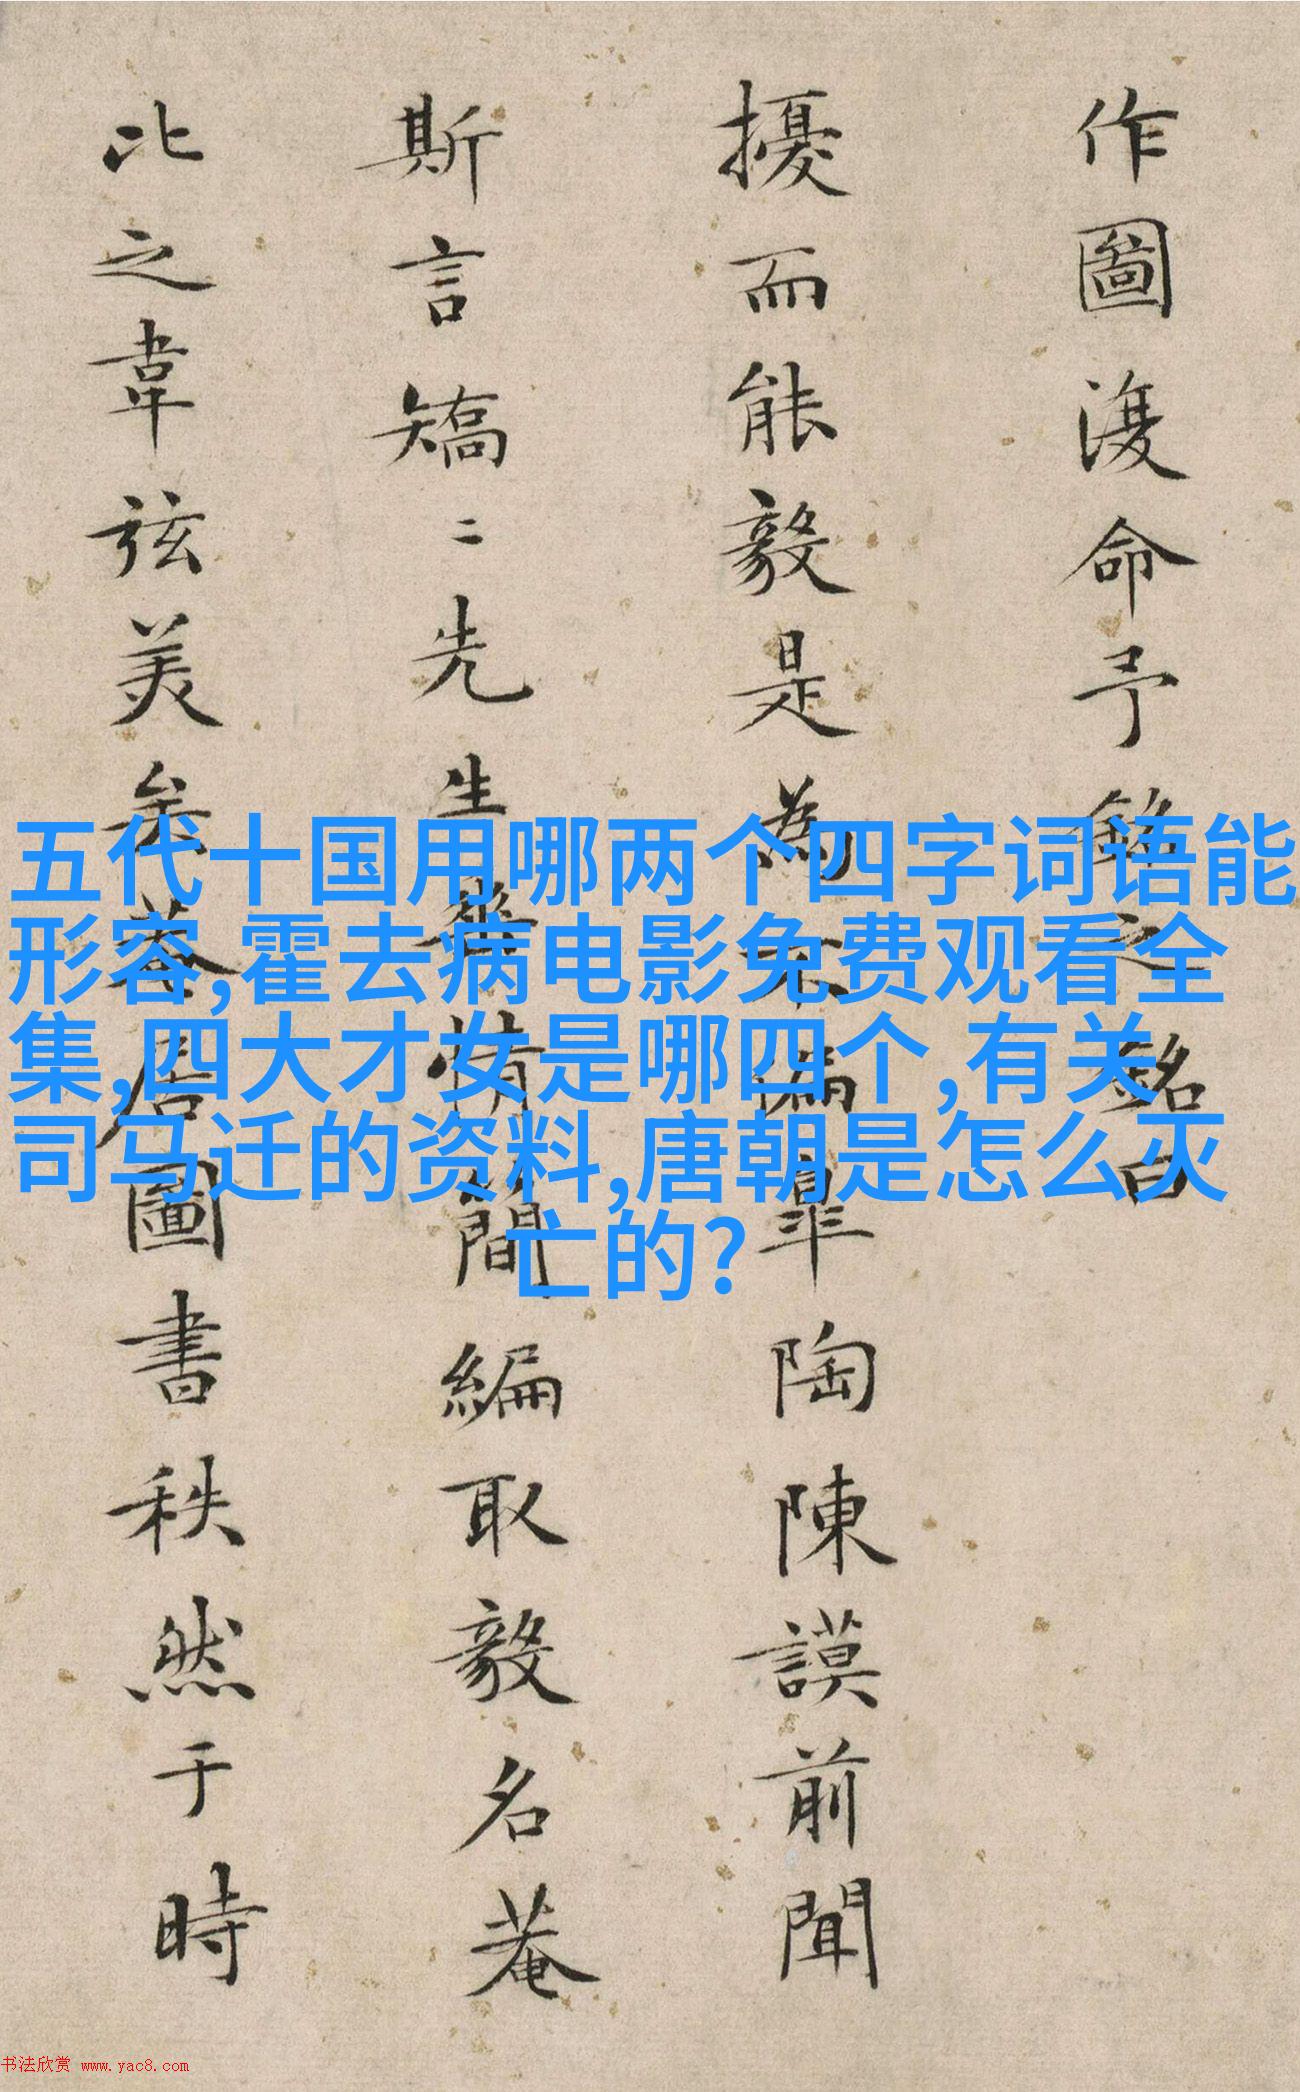 作圖復命予銘之銘曰
擾而能毅是為不偏皋陶陳謨前聞
斯言矯二先生情簡編取毅名菴
比之韋弦美矣菴居圖書秩然于時
五代十国用哪两个四字词语能
形容,霍去病电影免费观看全
集,四大才女是哪四个,有关
司马迁的资料,唐朝是怎么灭
亡的?
书法欣赏 www.yac8.com